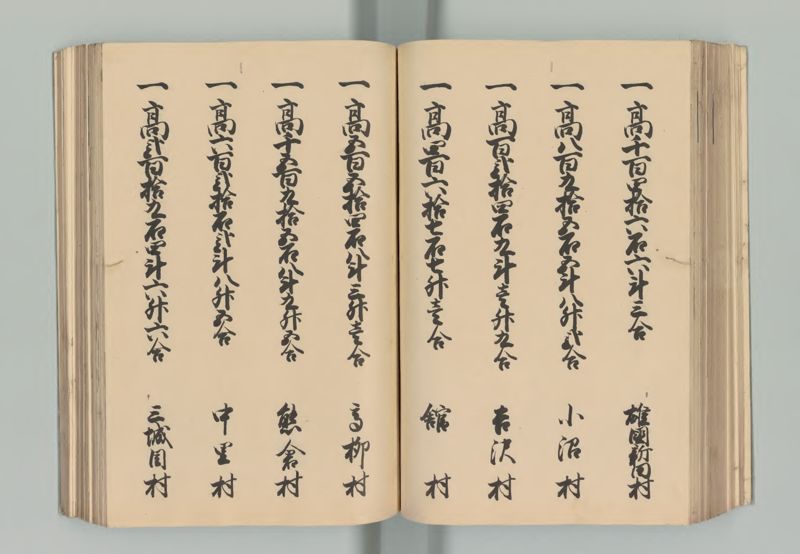 一高千百四拾六石六斗三合 雄國新田村
一高八百九拾五石五斗八升弐合 小沼村
一高百弐拾四石九斗壱升九合 吉沢村
一高四百六拾七石七升壱合 舘村
一高五百五拾四石八斗三升壱合 高柳村
一高千五百九拾五石八斗九升五合 熊倉村
一高六百弐拾石弐斗八升五合 中里村
一高弐百拾九石四斗六升六合 三城目村